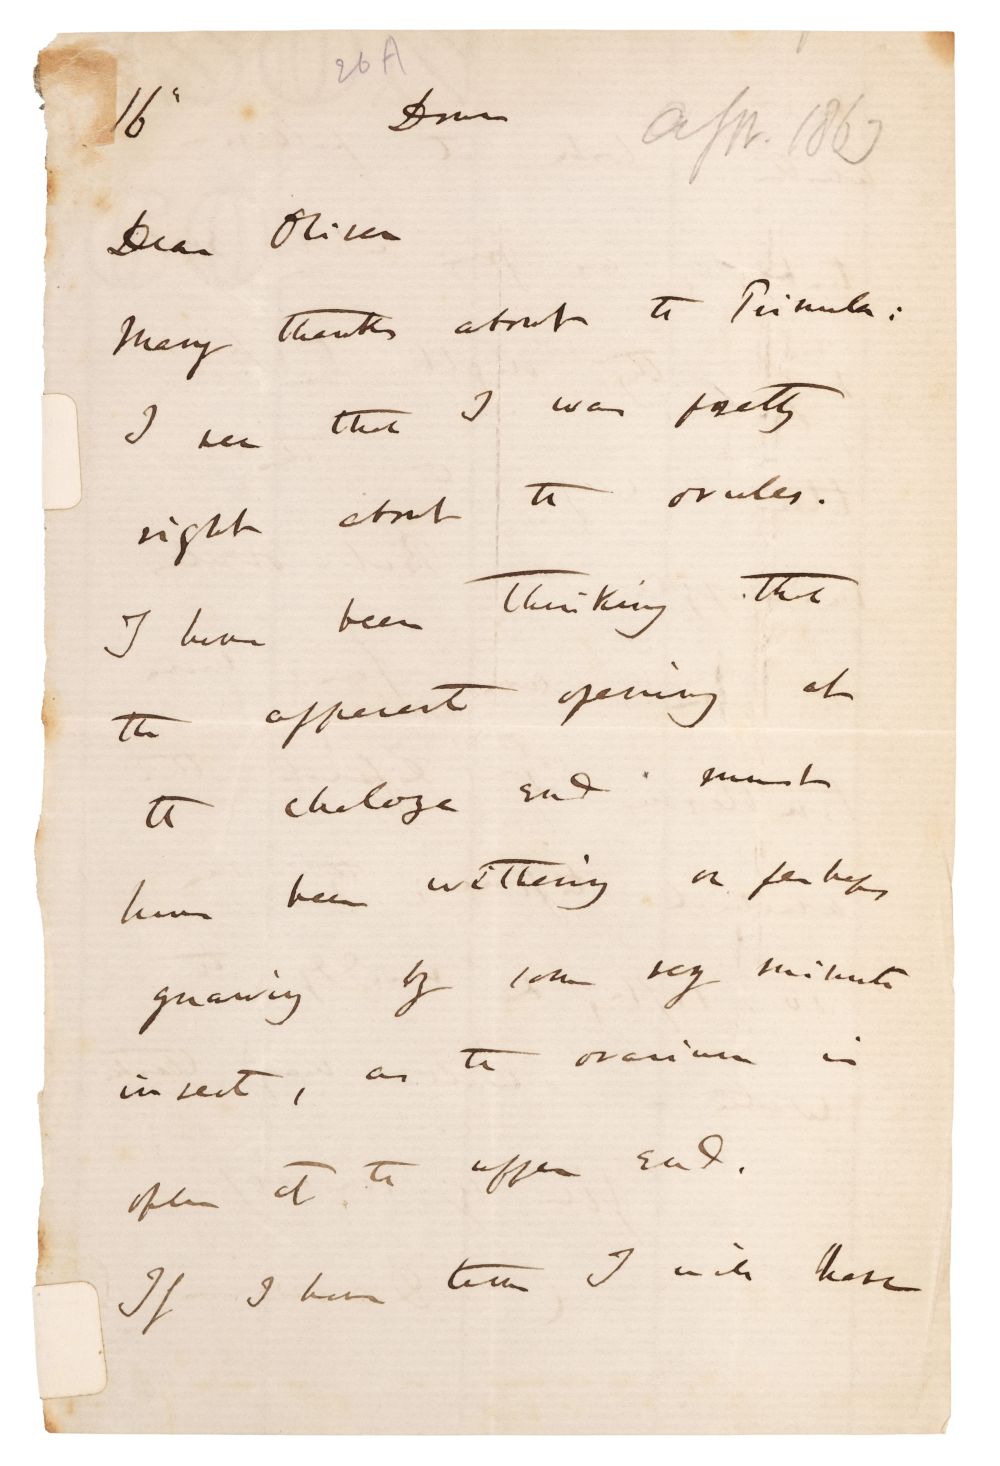 26A
16th Down Apr. 1863
Dear Oliver
Many thanks about the Primula:
I see that I was pretty
right about the ovules.
I have been thinking that
the apparent opening at
the chalaza end must
have been withering or perhaps
gnawing by some very minute
insect, as the ovarium is
open at the upper end.
If I have time I will have